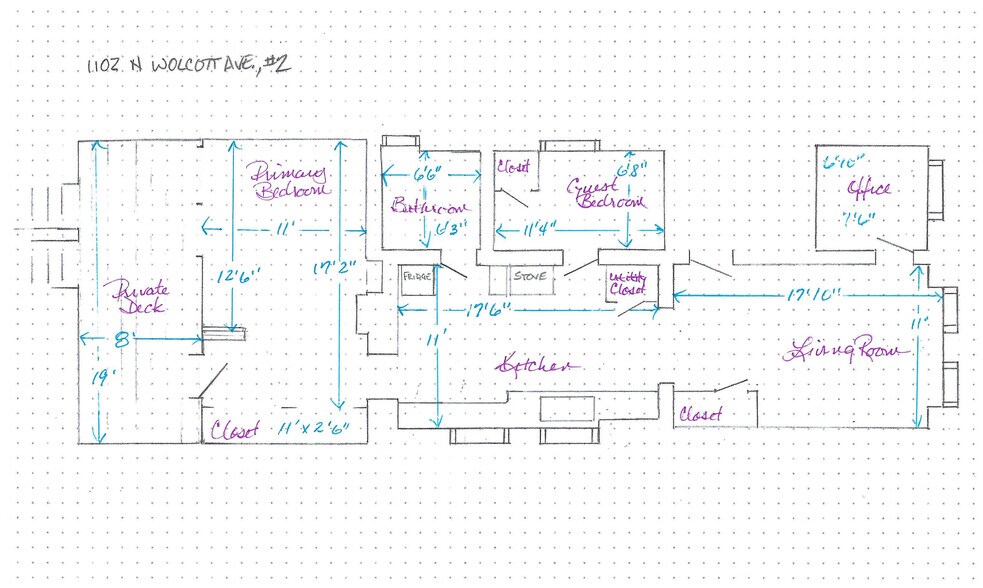 1102 N WOLCOTT AVE., #2
Primary
Bedroom
11'
12'6"
17'2"
Private
Deck
8'
19'
Closet 11' x 2'6"
6'6"
Bathroom
6'3"
Closet
6'8"
Guest
Bedroom
11'4"
6'10"
Office
7'6"
FRIDGE
STOVE
Utility
Closet
17'6"
11'
Kitchen
17'10"
11'
Living Room
Closet